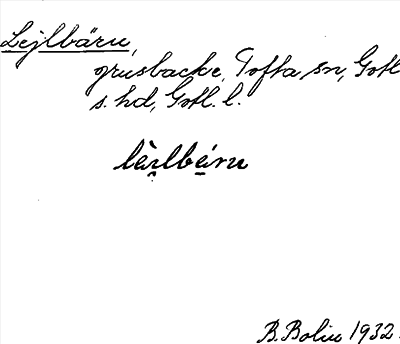 Lejlbäru,
grusbacke, Tofta sn, Gotl
s. hd, Gotl. l.
lèɪlbáru
B. Bolin 1932.